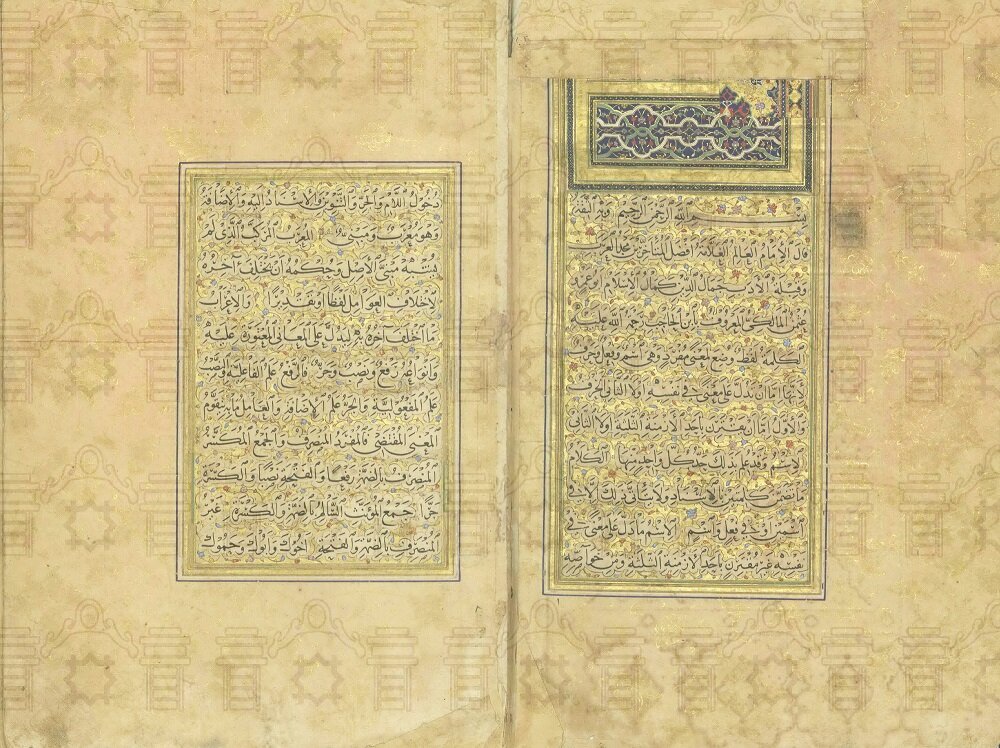 بسم الله الرحمن الرحيم وبه الثقة
قال الإمام العالم العلامة أفضل المتأخرين محلا لعرب
وقبلة الأدب جمال الدين كمال الإسلام أبو عمرو
عثمن المالكي المعروف بابن الحاجب رحمة الله عليه
الكلمة لفظ وضع لمعنى مفرد وهي اسم وفعل وحرف
لأنها إما أن تدل على معنى في نفسها أولا الثاني الحرف
والأول إما أن يقترن بأحد الأزمنة الثلثة أولا الثاني
الاسم وقد علم بذلك حد كل واحد منها الكلام
ما تضمن كلمتين بالإسناد ولا يتأتى ذلك إلا في
اسمين أو في فعل واسم الاسم ما دل على معنى في
نفسه غير مقترن بأحد الأزمنة الثلثة ومن خواصه
دخول اللام والجر والتنوين والإسناد إليه والإضافة
وهو معرب ومبني المعرب المركب الذي لم
يشبه مبني الأصل وحكمه أن يختلف آخره
لاختلاف العوامل لفظا أو تقديرا والإعراب
ما اختلف آخره به ليدل على المعاني المعتورة عليه
وأنواعه رفع ونصب وجر فالرفع علم الفاعلية والنصب
علم المفعولية والجر علم الإضافة والعامل ما به يتقوم
المعنى المقتضي فالمفرد المنصرف والجمع المكسر
المنصرف بالضمة رفعا والفتحة نصبا والكسرة
جرا جمع المؤنث السالم بالضمة والكسرة غير
المنصرف بالضمة والفتحة أخوك وأبوك وحموك